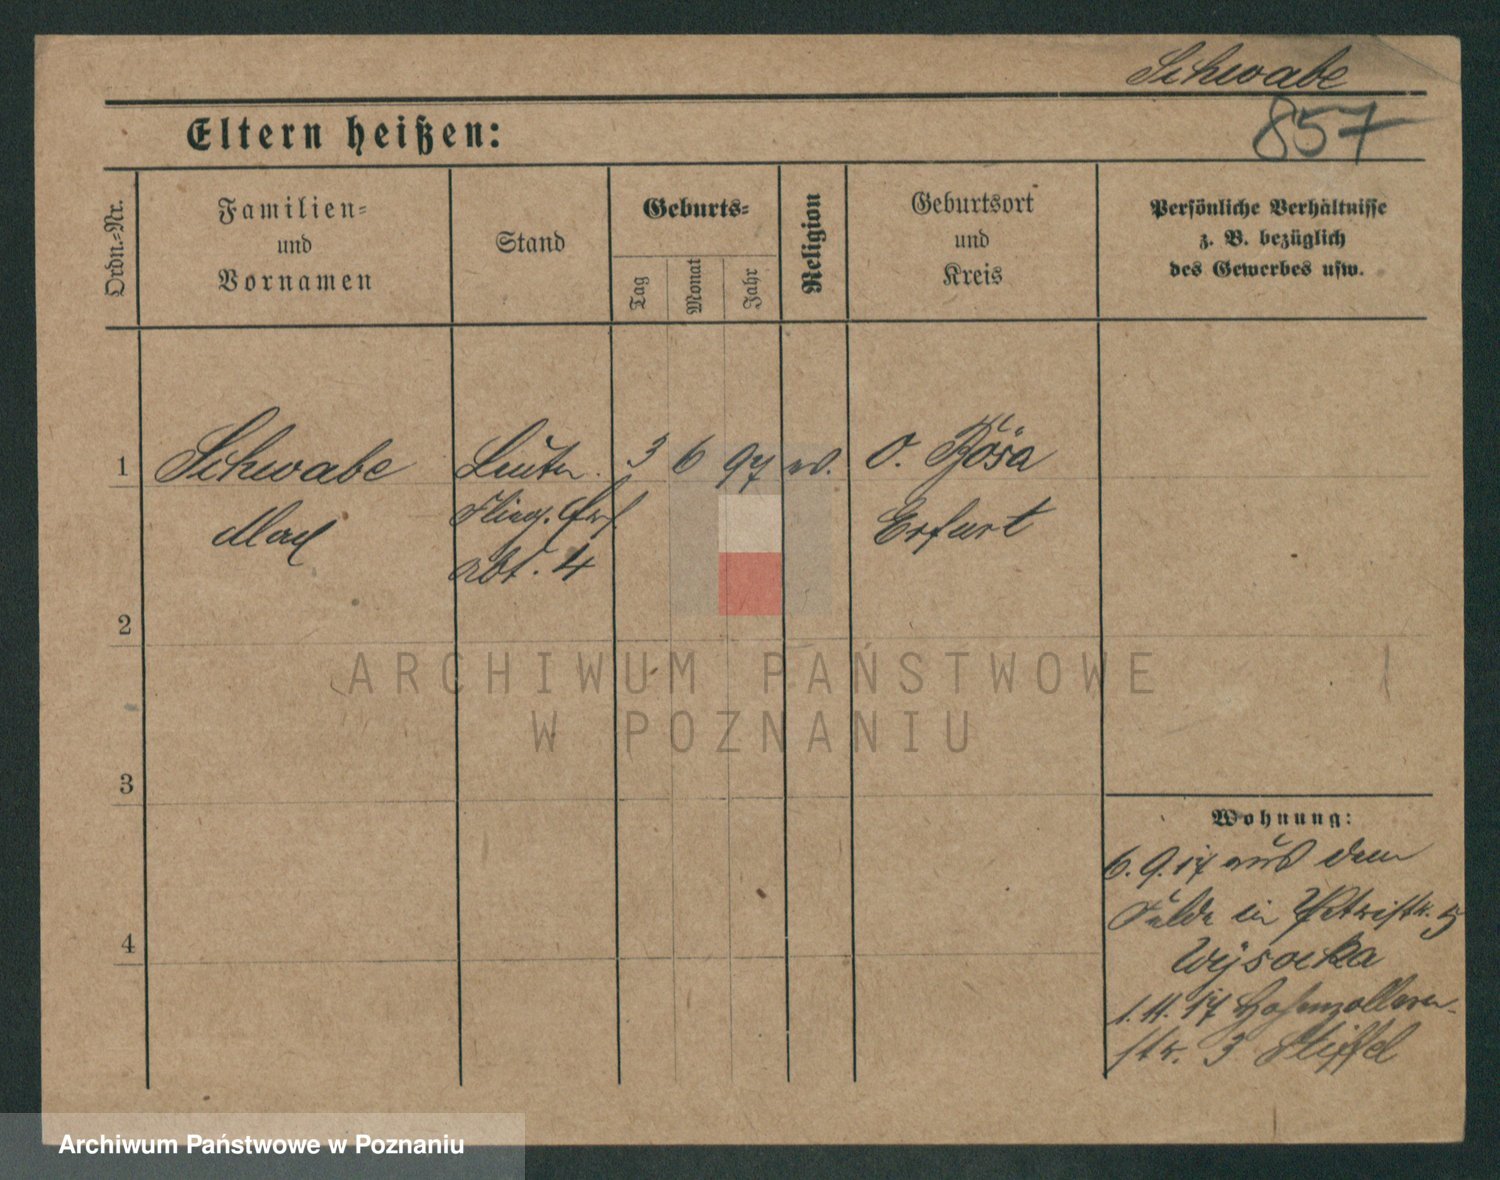 Schwabe
857
Eltern heißen:
Ordn.-Nr.
Familien-
und
Vornamen
Stand
Geburts-
Tag
Monat
Jahr
Religion
Geburtsort
und
Kreis
Persönliche Verhältnisse
z. B. bezüglich
des Gewerbes usw.
1 Schwabe Leutn. 3 6 97 ev. O. Bösa
Flieg. Ers.
Erfurt
Abt. 4
2
ARCHIWUM PAŃSTWOWE
W POZNANIU
3
Wohnung:
6. 9. 17 aus dem
Felde in Petristr. 5
Wysocka
4
1. 11. 17 Hohenzollern-
str. 3 Stiffel
Archiwum Państwowe w Poznaniu